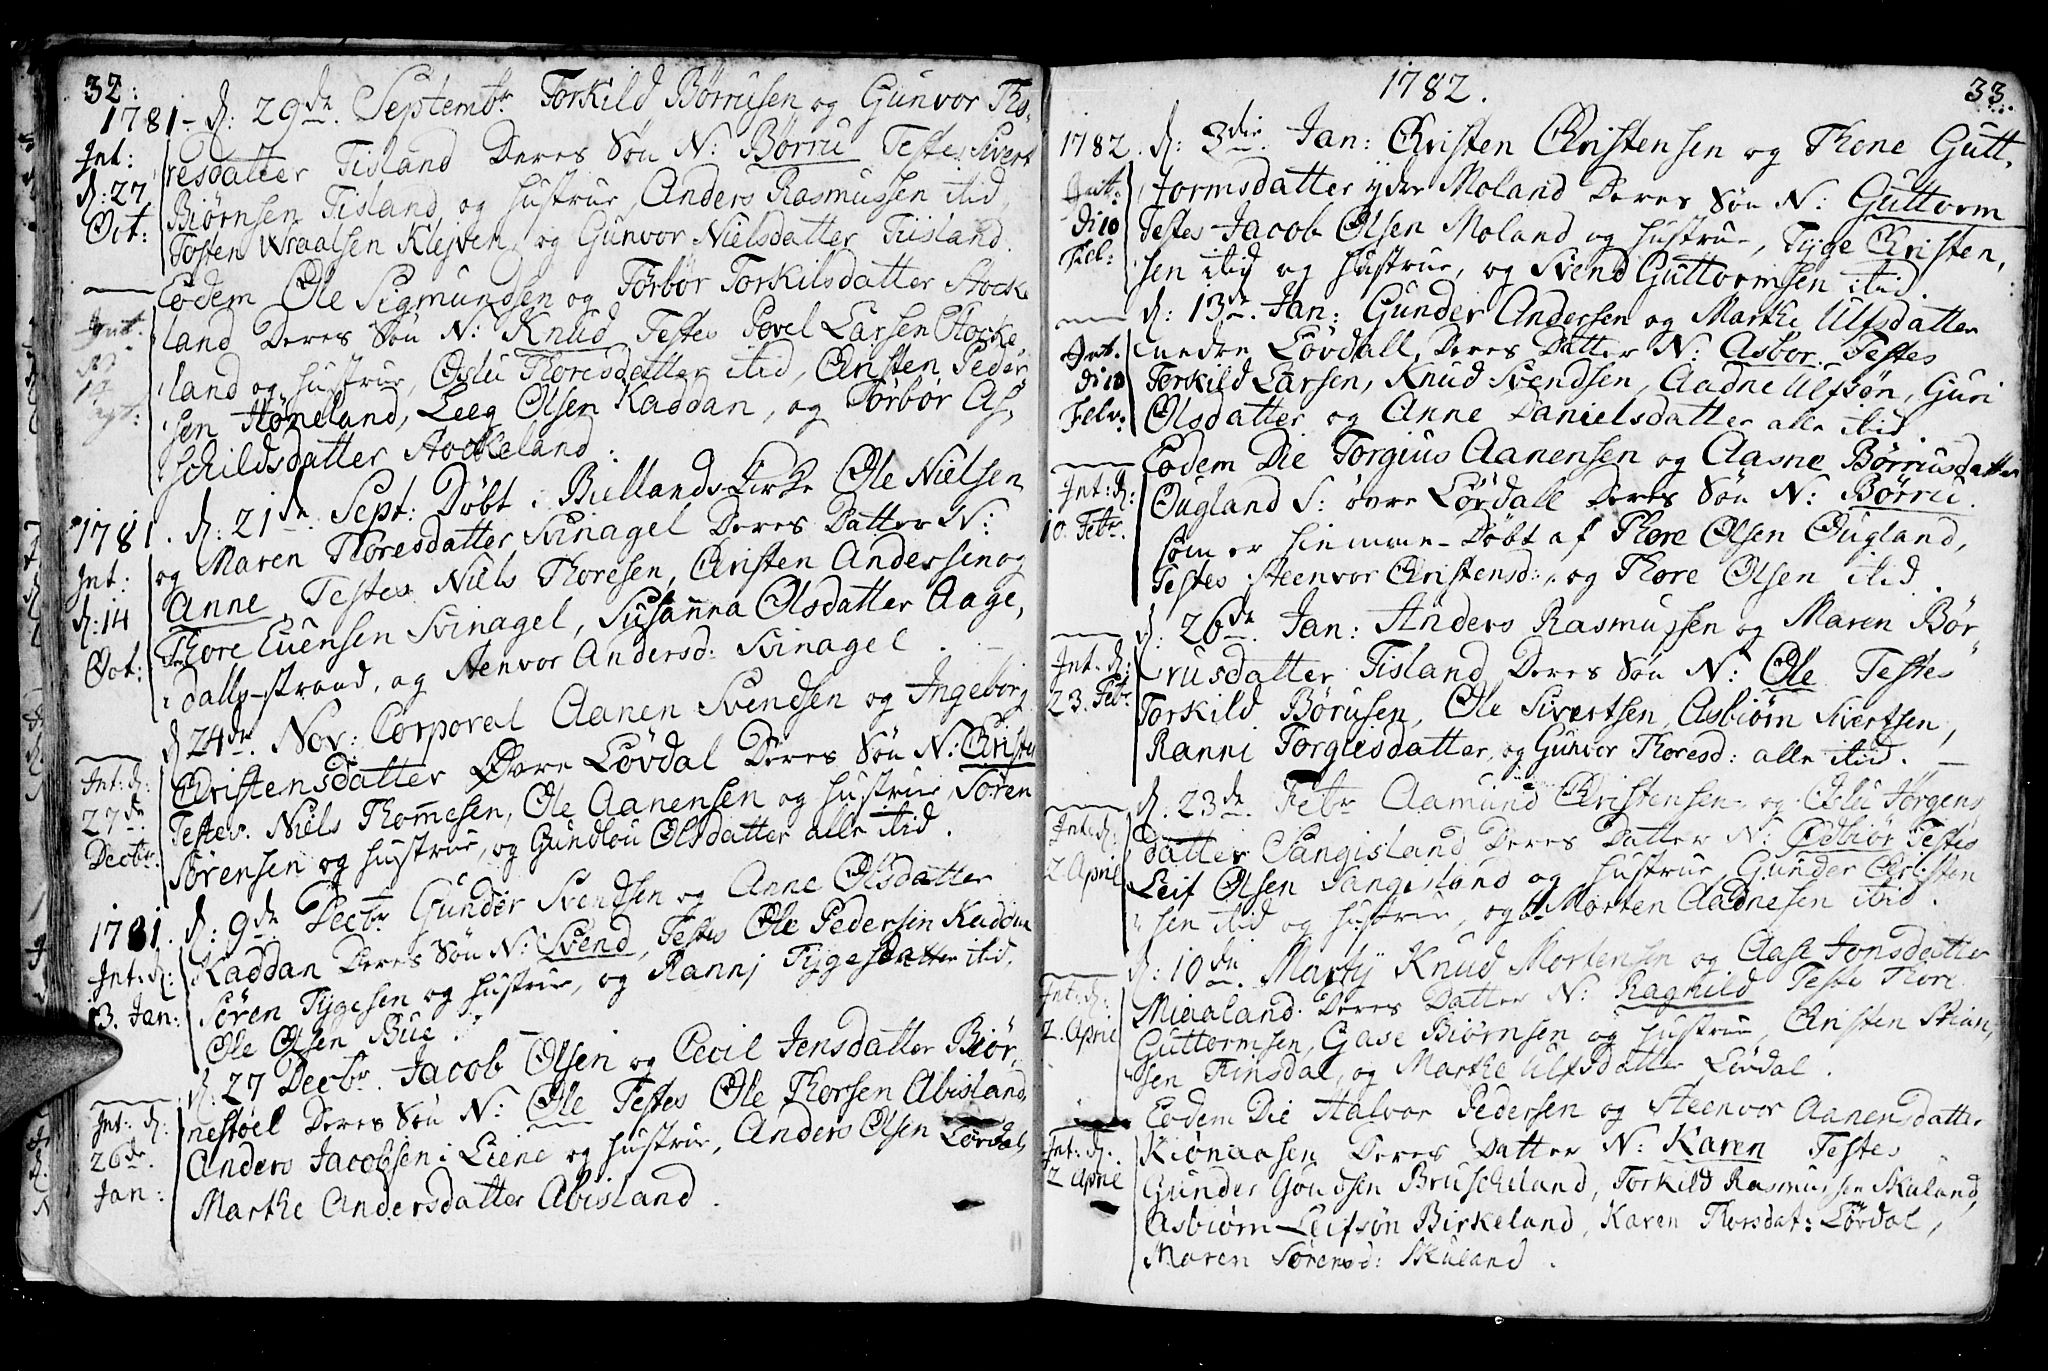 32:
1781 - d: 29de Septembr Torkild Börrusen og Gunvor Tho-
Int: resdatter Tisland Deres Sön N: Börru Testes Sivert
d: 27 Biörnsen Tisland og hustrue, Anders Rasmussen itid,
Oct: Tosten Wraalsen Klejven, og Gunvor Nielsdatter Tiisland.
Eodem Ole Sigmundsen og Torbör Torkilsdatter Stocke
Int. land Deres Sön N: Knud Testes Povel Larsen Stocke,
land og hustrue, Thoresdatter itid, Christen Peder
sen Höneland, Leeg Olsen Kaddan, og Törbör As,
schildsdatter Stockeland.
1781. d: 21de Sept: Döbt i Biellands Kirke Ole Nielsen
Int: og Maren Thoresdatter Svinagel Deres Datter N:
d: 14 Anne, Testes Niels Thoresen, Christen Andersen og
Thore Evensen Svinagel, Susanna Olsdatter Aage,
Oct: dalls-strand, og Stenvor Andersd: Svinagel.
d 24de Nov: Corporal Aanen Svendsen og Ingeborg
Int: d: Christensdatter Övre Lövdal Deres Sön N: Christen
27de Testes. Niels Thommesen, Ole Aanensen og hustrue, Sören
Decbr. Sörensen og hustrue, og Gundlou Olsdatter alle itid.
1781. d: 9de Decbr Gunder Svendsen og Anne Olsdatter
Int: d: Kaddan Deres Sön N: Svend, Testes Ole Pedersen Kaddan
13. Jan: Sören Tygesen og hustrue, og Rannj Tygesdatter itid.
Ole Olsen Bue.
d. 27 Decbr. Jacob Olsen og Cecil Jensdatter Biör
Int: d: nestöel Deres Sön N: Ole Testes Ole Thorsen Abisland,
26de. Anders Jacobsen i Liene og hustrue, Anders Olsen Lövdal,
Jan: Marthe Andersdatter Abisland.
1782. 33.
1782. d: 3die Jan: Christen Christensen og Thone Gutt,
Int: formsdatter ydre Moland Deres Sön N: Guttorm
di 10 Testes Jacob Olsen Moland og hustrue, Tyge Christen,
Feb: sen itid og hustrue, og Svend Guttormsen itid.
d: 13de. Jan: Gunder Andersen og Marthe Ulfsdatter
Int. nedre Lövdall, Deres Datter N: Asbor. Testes
di 10 Torkild Larsen, Knud Svendsen, Aadne Ulfsön, Guri
Febr: Olsdatter og Anne Danielsdatter alle itid.
Eodem Die Torgius Aanensen og Aasne Börrusdatter
Int: d: Ougland S: övre Lövdall Deres Sön N: Börru.
10. Febr. som er hiemme-Döbt af Thore Olsen Ougland,
Testes Steenvor Christensd:, og Thore Olsen itid.
d. 26de. Jan: Anders Rasmussen og Maren Bör
Int: d: rusdatter Tisland Deres Sön N: Ole Testes
23. Febr Torkild Börusen, Ole Sivertsen, Asbiörn Sivertsen,
Ranni Torgiesdatter, og Gunvor Thoresd: alle itid.
d. 23de Febr Aamund Christensen og Jörgens
Int: d: datter Sangisland Deres Datter N: Ödbiör Testes
2 April Leif Olsen Sangesland og hustrue, Gunder Christen
sen itid og hustrue, og Morten Aadnesen itid.
d: 10de. Martij Knud Mortensen og Aase Jonsdatter
Int: d: Mieland. Deres Datter N: Ragnild Teste Thore
2. April Guttormsen, Gase Biörnsen og hustrue, Christen Stian,
sen Finsdal, og Marthe Ulfsdatter Lövdal.
Eodem Die Halvor Pedersen og Steenvor Aanensdatter
Int: d. Kiönaasen Deres Datter N: Karen Testes
2 April Gunder Goudsen Bruscheland, Torkild Rasmussen Skuland,
Asbiörn Leifsön Birkeland, Karen Thorsdat: Lövdal,
Maren Sörensd: Skuland.